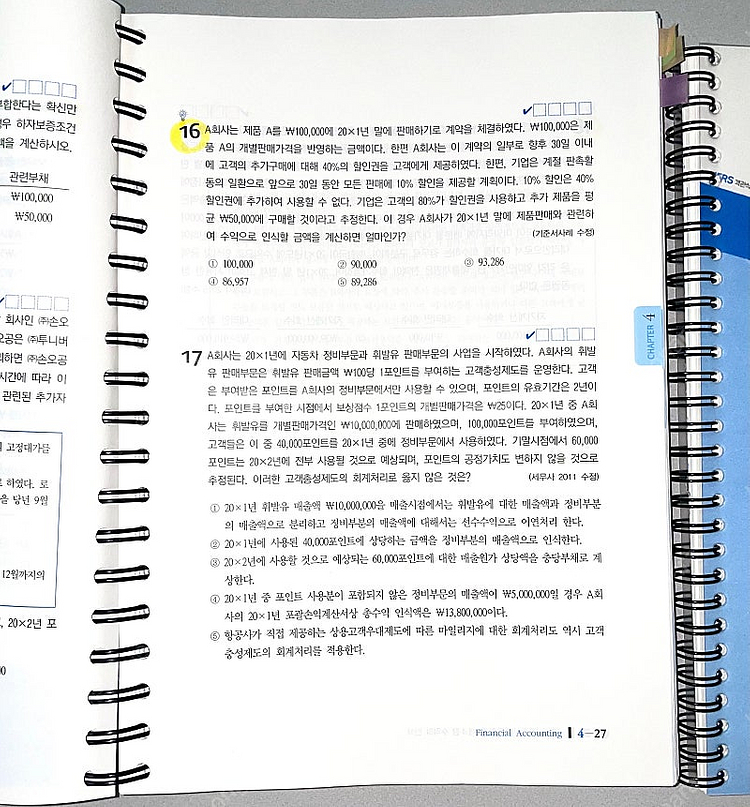 합한다는 확신만
우 하자보증조건
을 계산하시오.
관련부채
₩100,000
₩50,000
회사인 ㈜손오
오공은 ㈜투니버
하면 ㈜손오공
시간에 따라 이
관련된 추가자
고정대가를
하였다. 로
을 당년 9월
12월까지의
, 20×2년 포
16 A회사는 제품 A를 ₩100,000에 20×1년 말에 판매하기로 계약을 체결하였다. ₩100,000은 제
품 A의 개별판매가격을 반영하는 금액이다. 한편 A회사는 이 계약의 일부로 향후 30일 이내
에 고객의 추가구매에 대해 40%의 할인권을 고객에게 제공하였다. 한편, 기업은 계절 판촉활
동의 일환으로 앞으로 30일 동안 모든 판매에 10% 할인을 제공할 계획이다. 10% 할인은 40%
할인권에 추가하여 사용할 수 없다. 기업은 고객의 80%가 할인권을 사용하고 추가 제품을 평
균 ₩50,000에 구매할 것이라고 추정한다. 이 경우 A회사가 20×1년 말에 제품판매와 관련하
여 수익으로 인식할 금액을 계산하면 얼마인가? (기준서사례 수정)
① 100,000 ② 90,000 ③ 93,286
④ 86,957 ⑤ 89,286
17 A회사는 20×1년에 자동차 정비부문과 휘발유 판매부문의 사업을 시작하였다. A회사의 휘발
유 판매부문은 휘발유 판매금액 ₩100당 1포인트를 부여하는 고객충성제도를 운영한다. 고객
은 부여받은 포인트를 A회사의 정비부문에서만 사용할 수 있으며, 포인트의 유효기간은 2년이
다. 포인트를 부여한 시점에서 보상점수 1포인트의 개별판매가격은 ₩25이다. 20×1년 중 A회
사는 휘발유를 개별판매가격인 ₩10,000,000에 판매하였으며, 100,000포인트를 부여하였으며,
고객들은 이 중 40,000포인트를 20×1년 중에 정비부문에서 사용하였다. 기말시점에서 60,000
포인트는 20×2년에 전부 사용될 것으로 예상되며, 포인트의 공정가치도 변하지 않을 것으로
추정된다. 이러한 고객충성제도의 회계처리로 옳지 않은 것은? (세무사 2011 수정)
① 20×1년 휘발유 매출액 ₩10,000,000을 매출시점에서는 휘발유에 대한 매출액과 정비부분
의 매출액으로 분리하고 정비부분의 매출액에 대해서는 선수수익으로 이연처리 한다.
② 20×1년에 사용된 40,000포인트에 상당하는 금액을 정비부분의 매출액으로 인식한다.
③ 20×2년에 사용할 것으로 예상되는 60,000포인트에 대한 매출원가 상당액을 충당부채로 계
상한다.
④ 20×1년 중 포인트 사용분이 포함되지 않은 정비부문의 매출액이 ₩5,000,000일 경우 A회
사의 20×1년 포괄손익계산서상 총수익 인식액은 ₩13,800,000이다.
⑤ 항공사가 직접 제공하는 상용고객우대제도에 따른 마일리지에 대한 회계처리도 역시 고객
충성제도의 회계처리를 적용한다.
CHAPTER 4
Financial Accounting 4-27